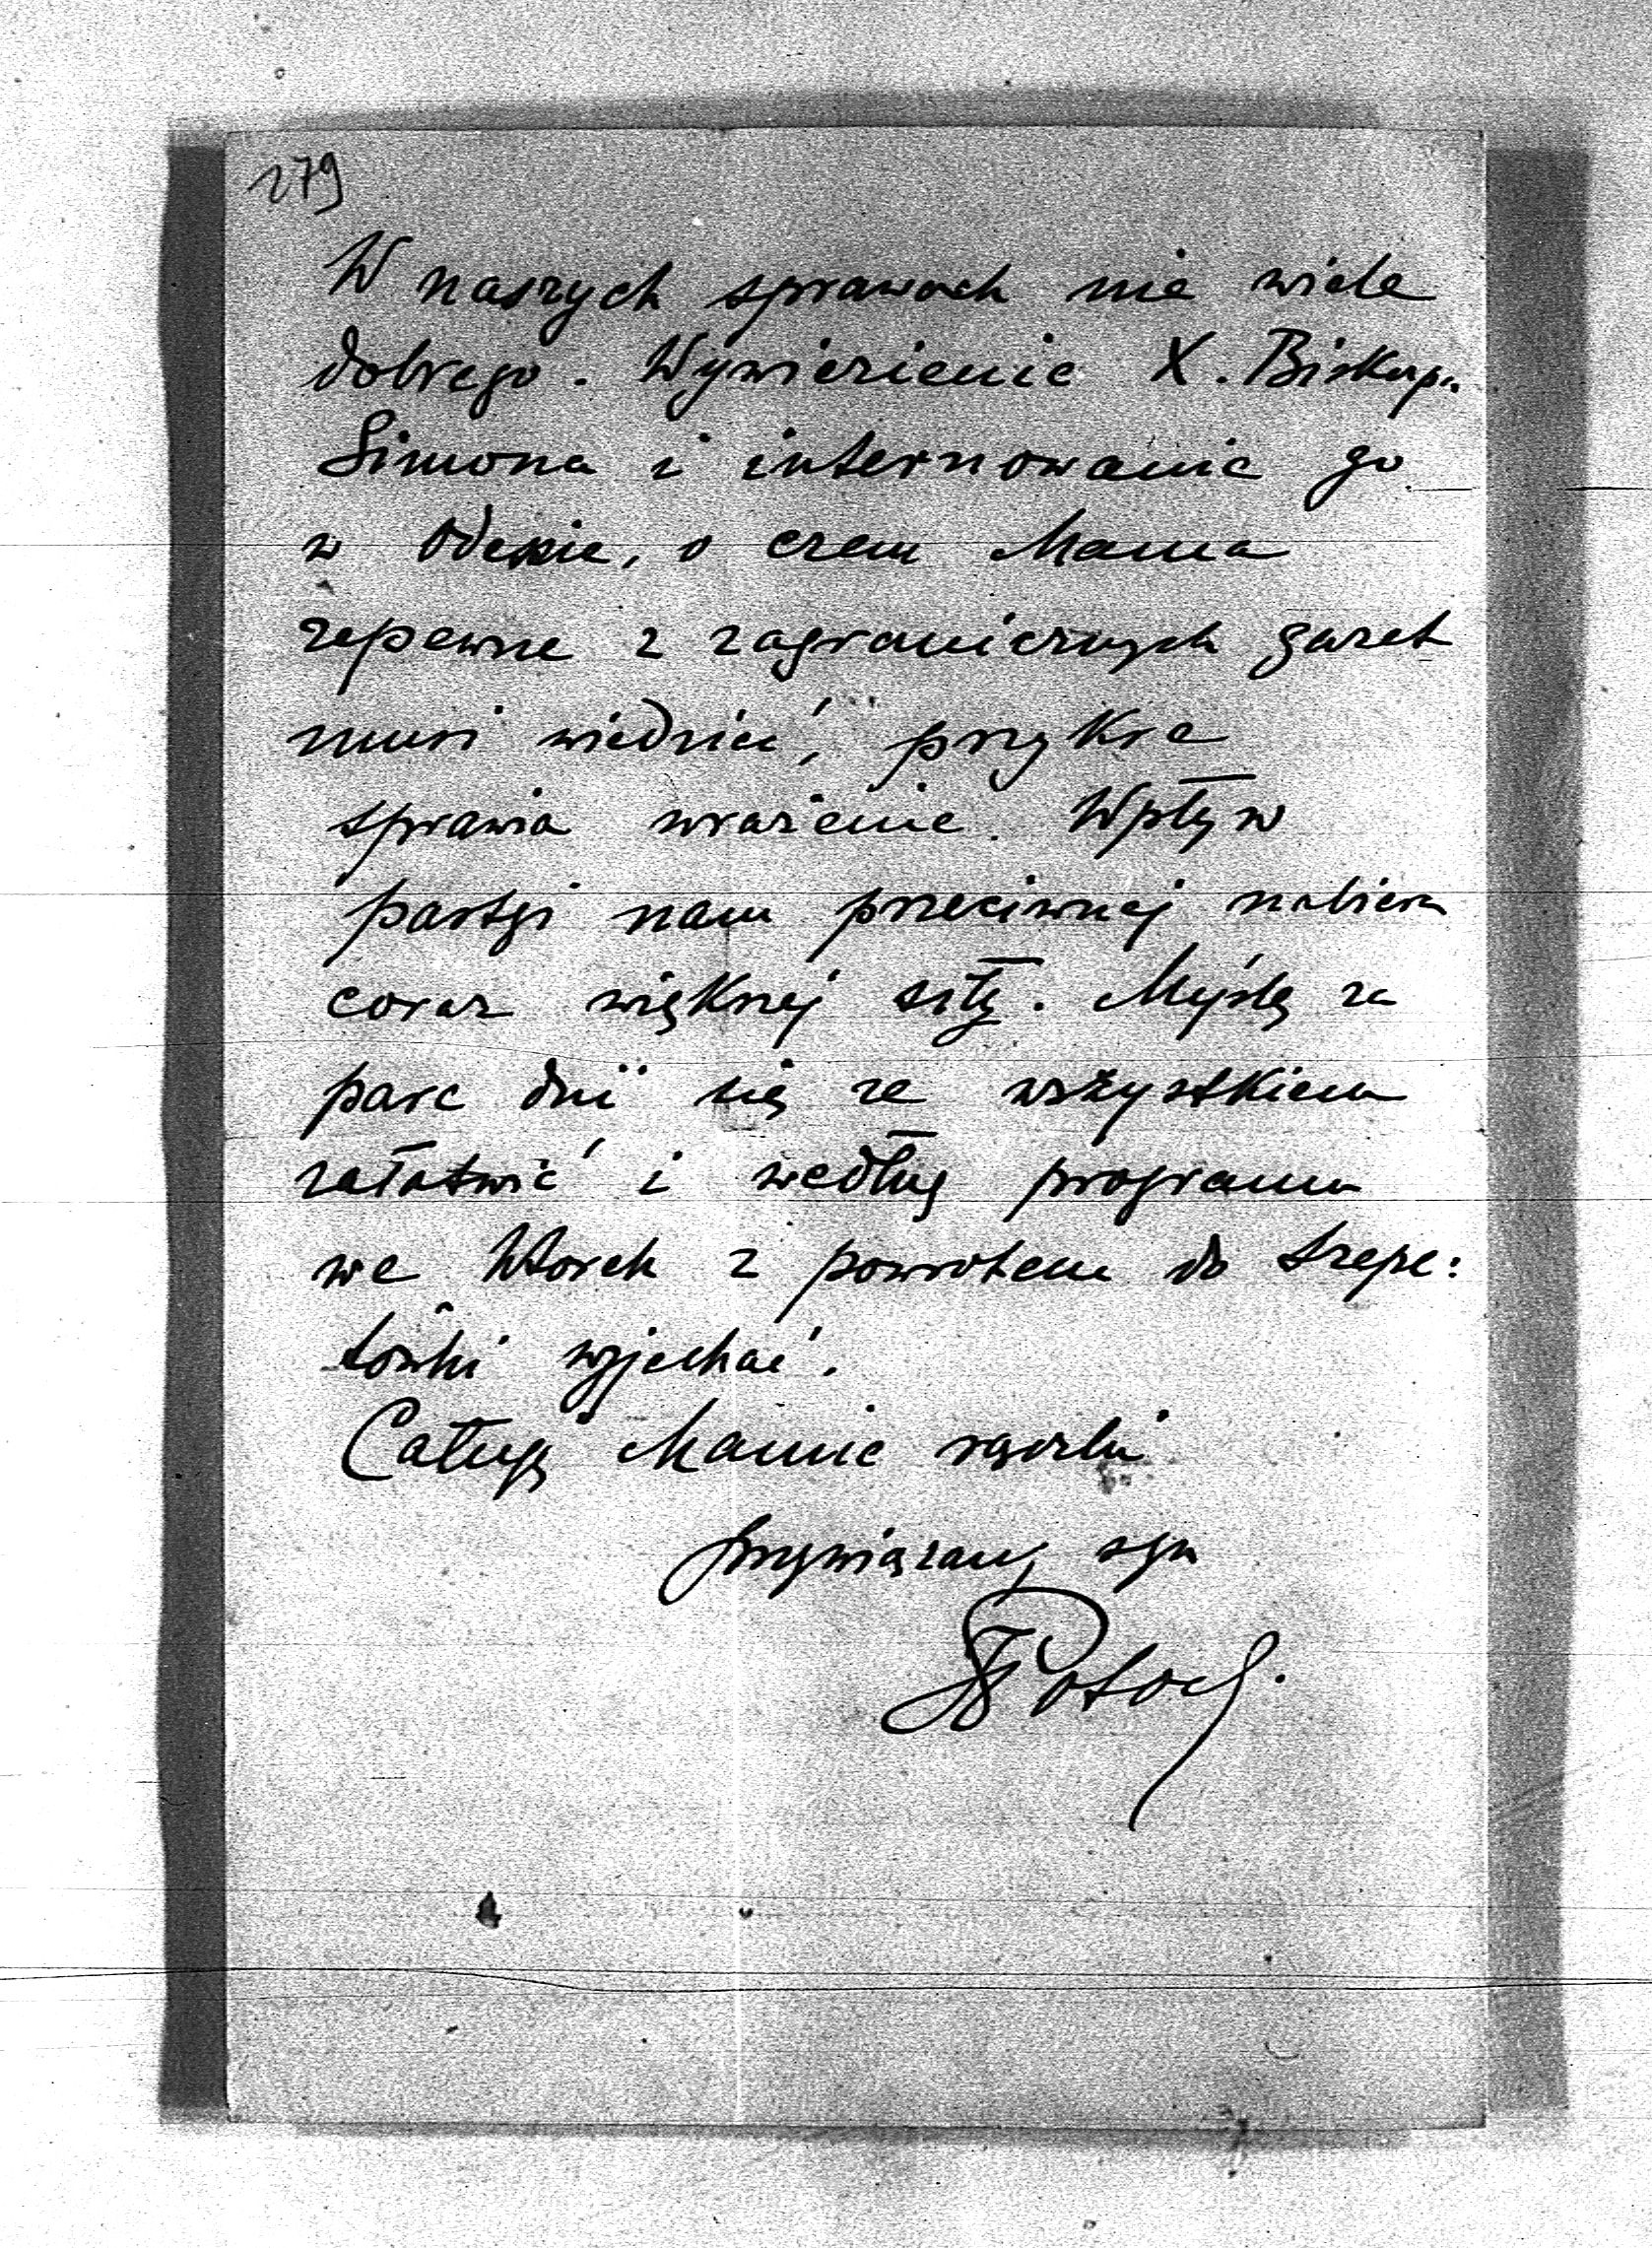 279
W naszych sprawach nie wiele
dobrego. Wywiezienie X. Biskupa
Simona i internowanie go
w Odessie, o czem Mama
zapewne z zagranicznych gazet
musi wiedzieć, przykre
sprawia wrażenie. Wpływ
partyi nam przeciwnej nabiera
coraz większej siły. Myślę za
parę dni się ze wszystkiem
załatwić i według programu
we Wtorek z powrotem do Szepe:
tówki wyjechać.
Całuję Mamie rączki
przywiązany syn
JPotock.